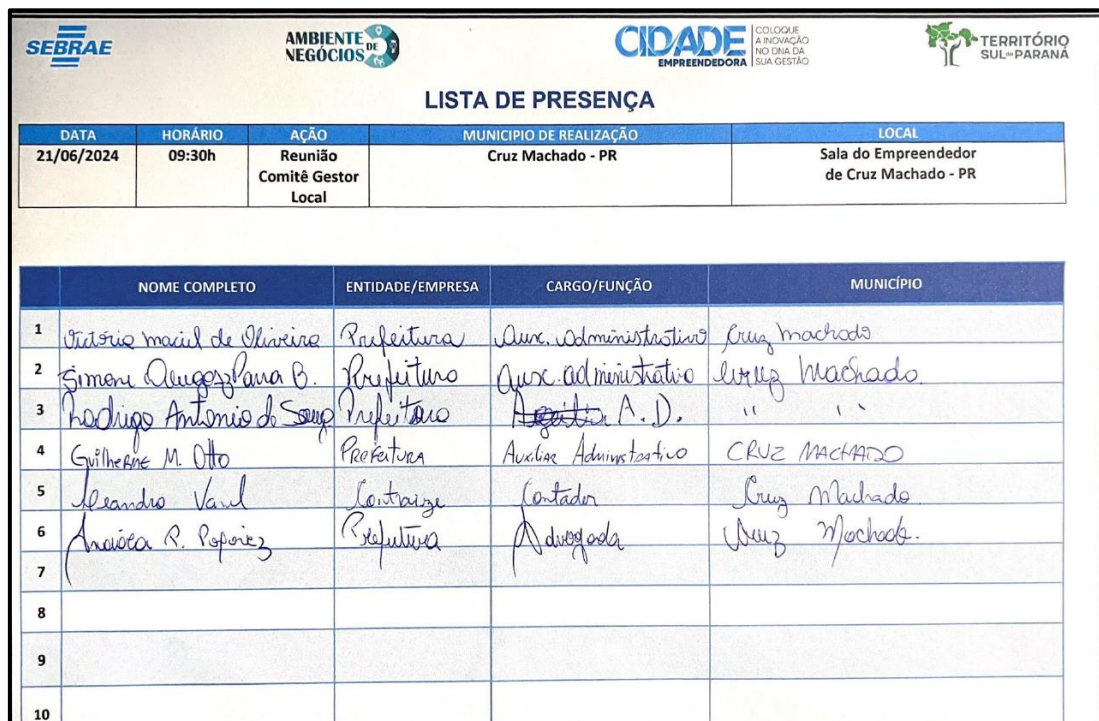 SEBRAE
AMBIENTE DE NEGÓCIOS
CIDADE EMPREENDEDORA
COLOQUE A INOVAÇÃO NO DNA DA SUA GESTÃO
TERRITÓRIO SUL DO PARANÁ
LISTA DE PRESENÇA
DATA HORÁRIO AÇÃO MUNICIPIO DE REALIZAÇÃO LOCAL
21/06/2024 09:30h Reunião Cruz Machado - PR Sala do Empreendedor
Comitê Gestor de Cruz Machado - PR
Local
NOME COMPLETO ENTIDADE/EMPRESA CARGO/FUNÇÃO MUNICÍPIO
1 Victória maciel de Oliveira Prefeitura Aux. Administrativo Cruz machado
2 Simone B. Prefeitura Aux. administrativo Cruz Machado.
3 Rodrigo Antonio de Souza Prefeitura A.D. " "
4 Guilherme M. Otto Prefeitura Auxiliar Administrativo CRUZ MACHADO
5 Leandro Contador Cruz Machado
6 R. Prefeitura Advogada Cruz Machado.
7
8
9
10